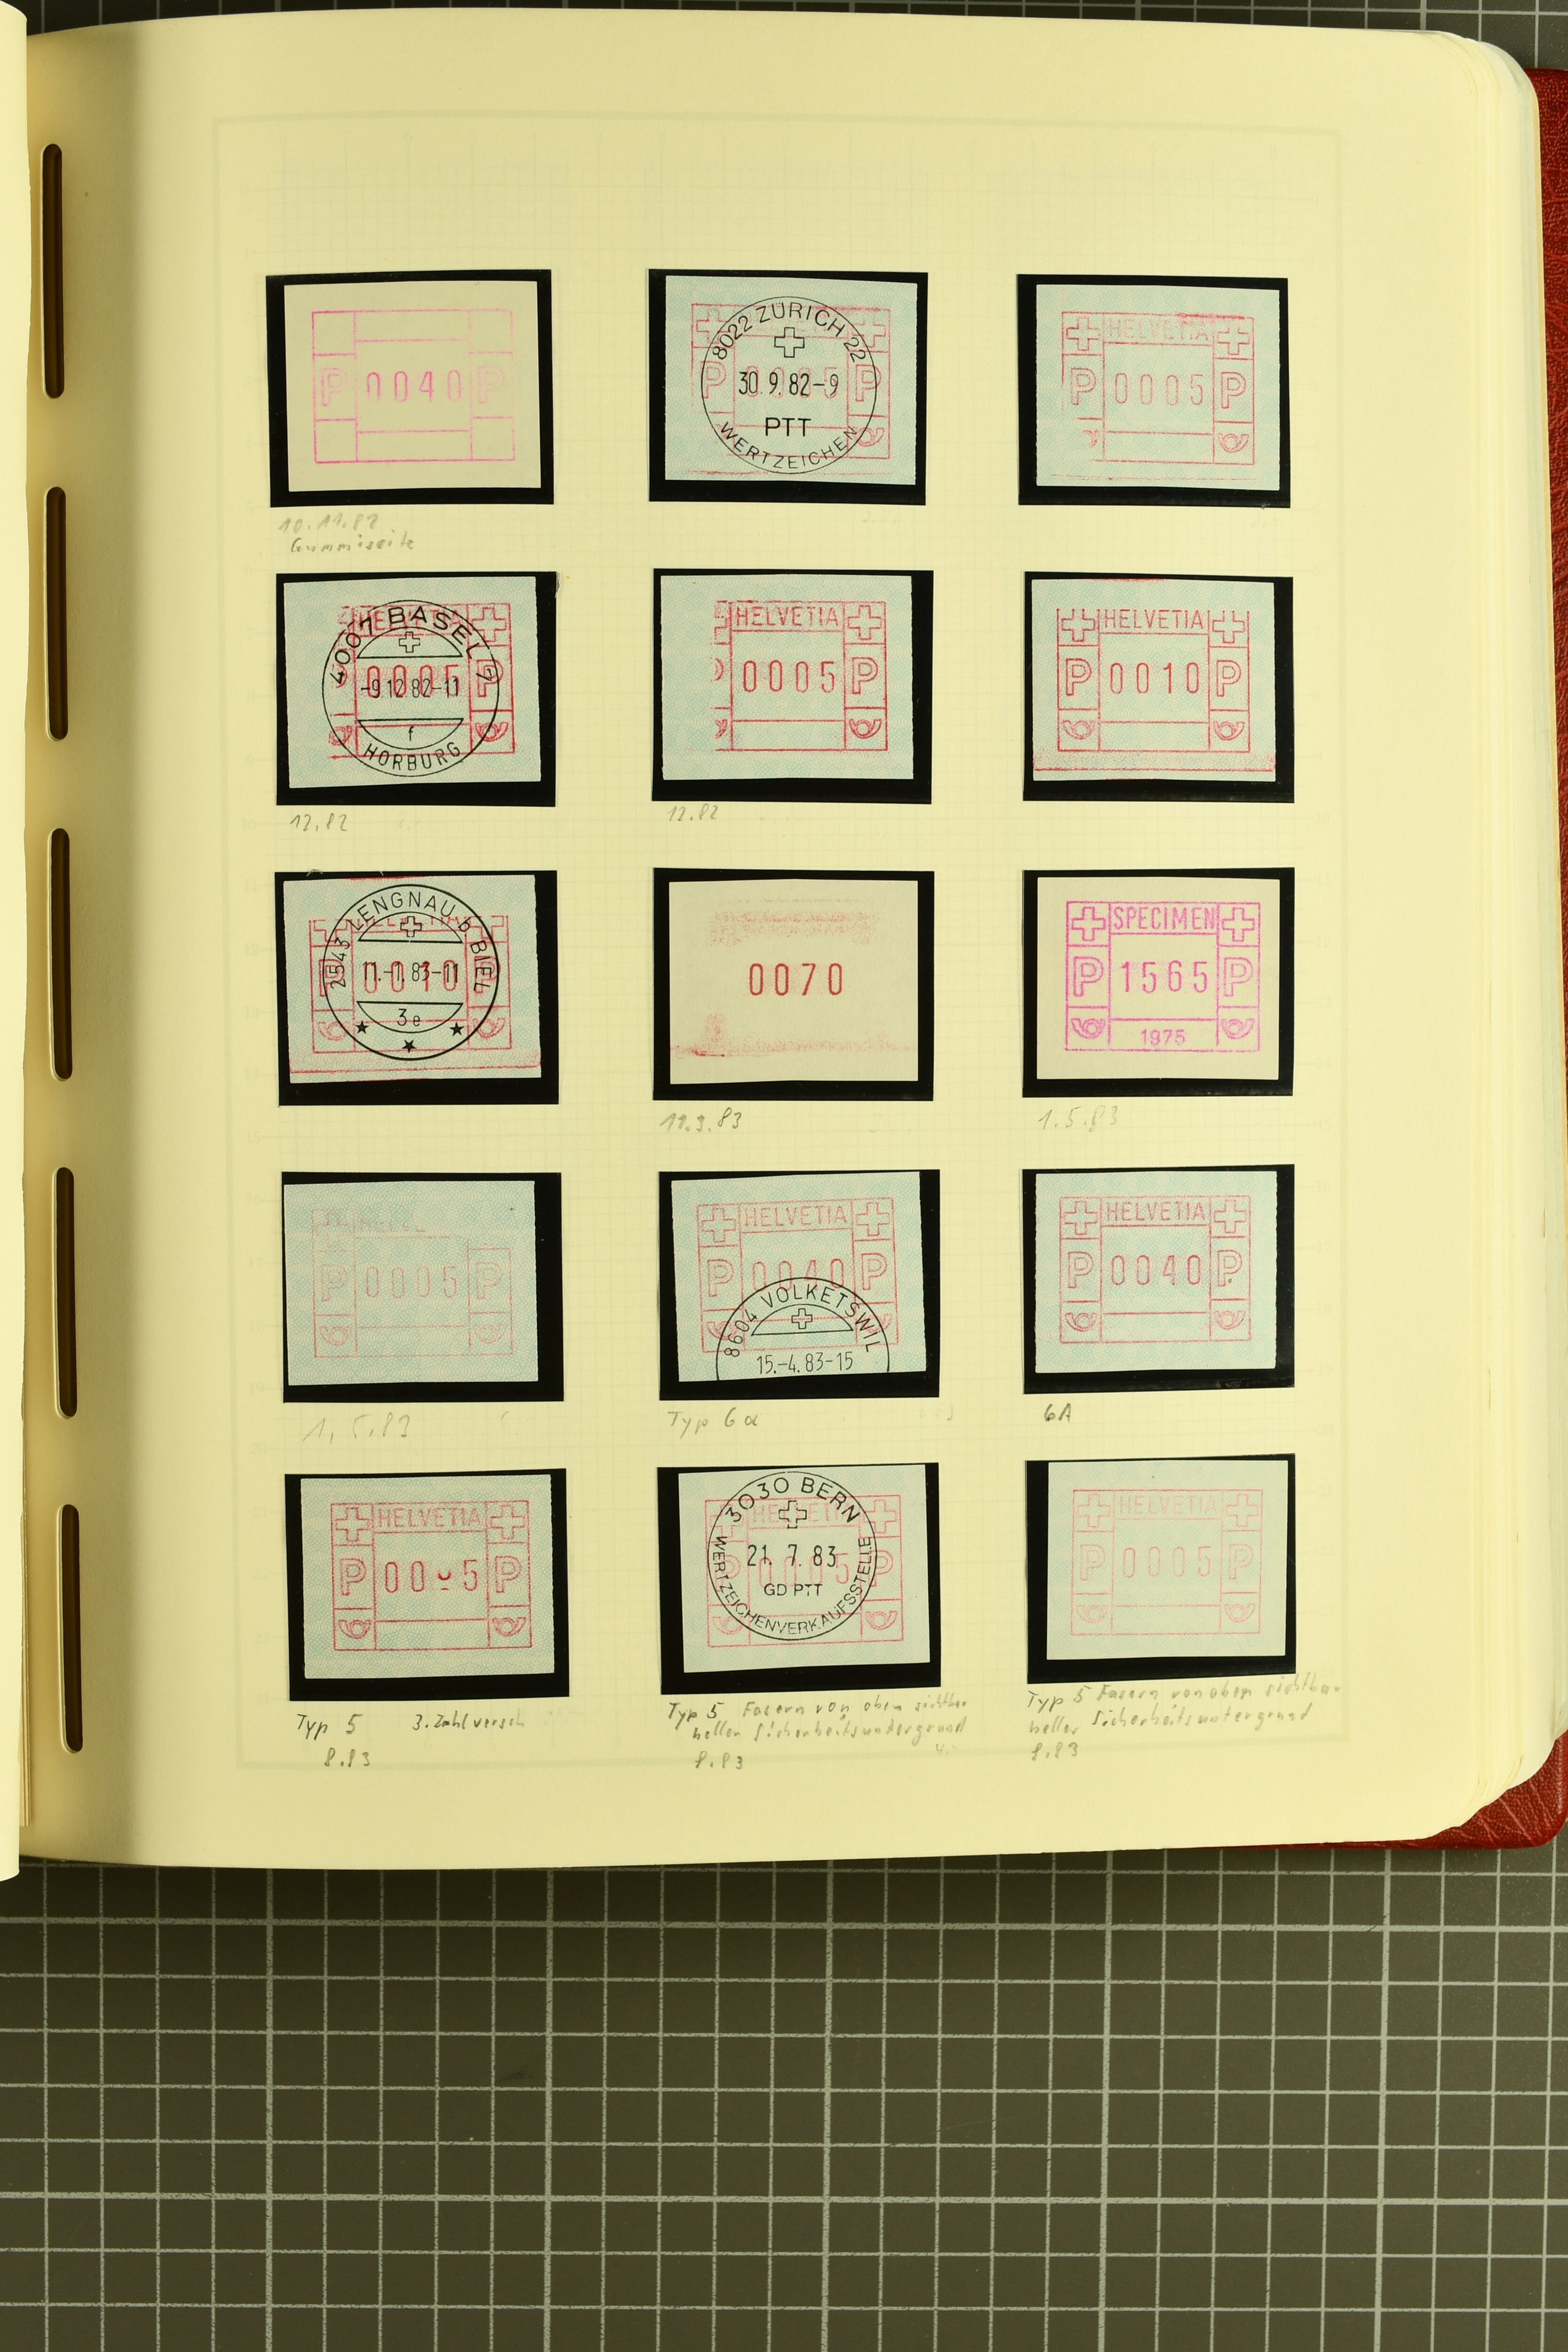 P 0040 P
10.11.82
Gummiseite
8022 ZÜRICH 22
P P
30.9.82-9
PTT
WERTZEICHEN
HELVETIA
P 0005 P
4007 BASEL 7
HELVETIA
0005 P
-9.12.82-11
f
HORBURG
12.82
HELVETIA
0005 P
12.82
HELVETIA
P 0010 P
2543 LENGNAU b. BIEL
P 0010 P
11.-1.83-11
3e
0070
11.3.83
SPECIMEN
P 1565 P
1975
1.5.83
HELVE
P 0005 P
1.5.83
HELVETIA
P 0040 P
8604 VOLKETSWIL
15.-4.83-15
Typ 6a
HELVETIA
P 0040 P
6A
HELVETIA
P 00 5 P
Typ 5 3. Zahl versch
8.83
3030 BERN
HELVETIA
21. 7. 83
P 0005 P
GD PTT
WERTZEICHENVERKAUFSSTELLE
Typ 5 Fasern von oben sichtbar
heller Sicherheitsuntergrund
8.83
HELVETIA
P 0005 P
Typ 5 Fasern von oben sichtbar
heller Sicherheitsuntergrund
8.83